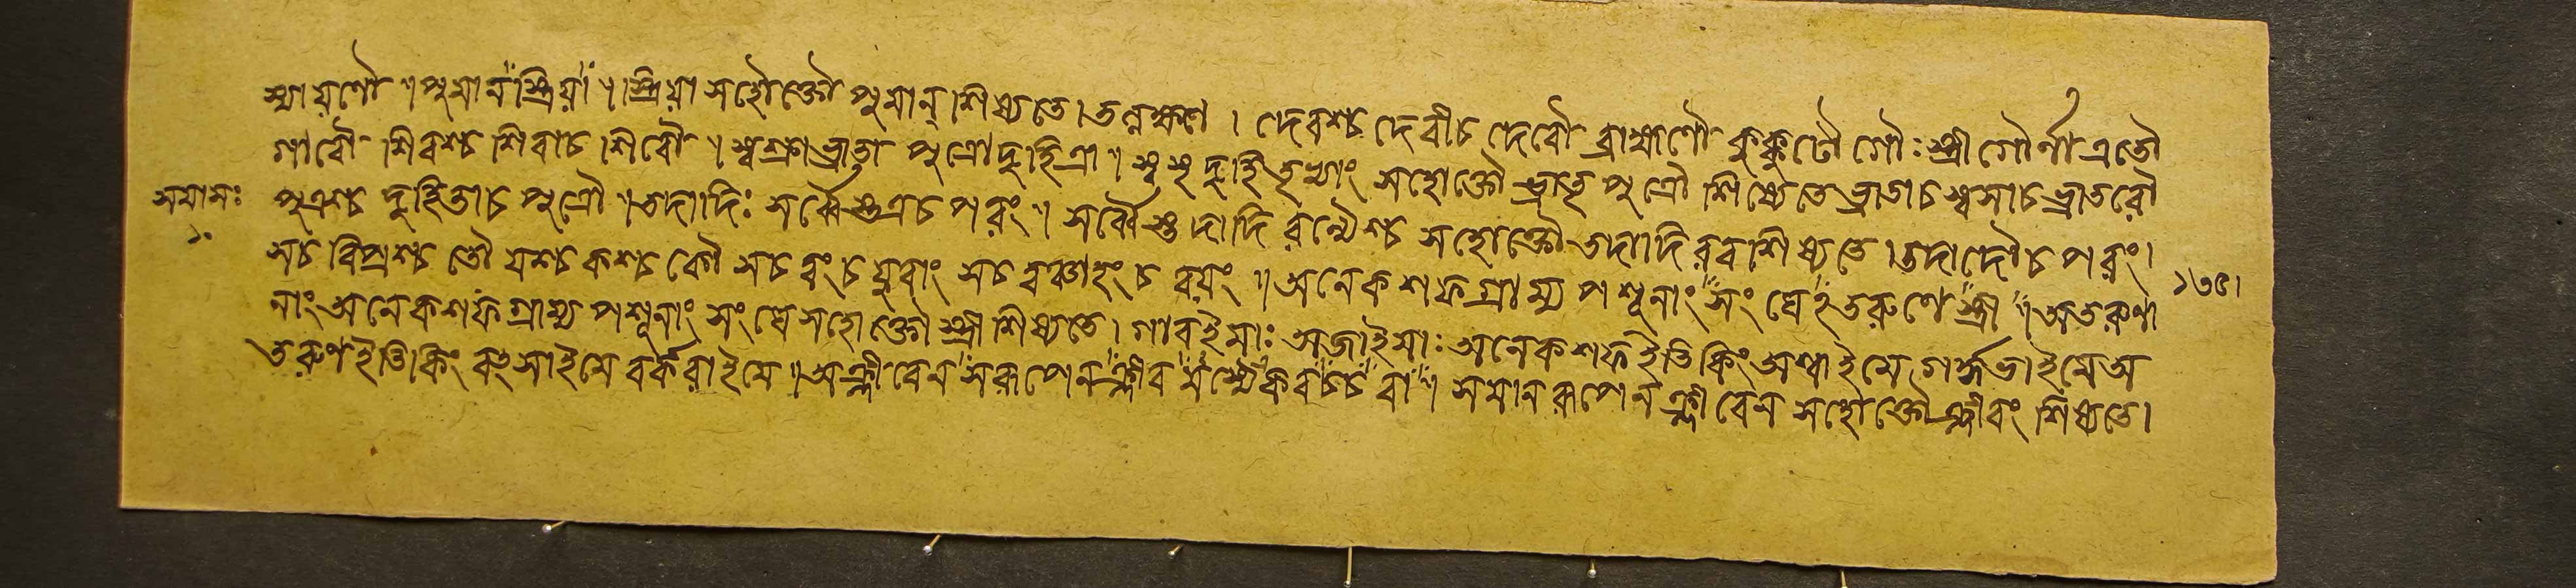 স্মায়ণৌ ॥ পুমান্ স্ত্রিয়া ॥ স্ত্রিয়া সহোক্তৌ পুমান্ শিষ্যতে । তল্লক্ষণ । দেবশ্চ দেবীচ দেবৌ ব্রাহ্মণৌ কুক্কুটৌ গৌঃ স্ত্রী গৌর্না এতৌ
গাবৌ শিবশ্চ শিবাচ শিবৌ । স্বশ্রা ভ্রাতা পুত্রো দুহিত্রা ॥ স্বসৃ দুহিতৃভ্যাং সহোক্তৌ ভ্রাতৃ পুত্রৌ শিষ্যেতে ভ্রাতাচ স্বসাচ ভ্রাতরৌ
সমাসঃ পুত্রশ্চ দুহিতাচ পুত্রৌ ॥ তদাদিঃ সর্ব্বৈস্তত্রচ পরং ॥ সর্ব্বৈস্ত দাদি রন্যৈশ্চ সহোক্তৌ তদাদিরবশিষ্যতে । তদাদৌচ পরং ।
সচ বিপ্রশ্চ তৌ যশ্চ কশ্চ কৌ সচ ত্বংচ যুবাং সচ ত্বঞ্চাহংচ বয়ং ॥ অনেকশফগ্রাম্য পশূনাং সংঘেহতরুণে স্ত্রী ॥ অতরুণা ১৩৫ ।
নাং অনেকশফগ্রাম্য পশূনাং সংঘে সহোক্তৌ স্ত্রী শিষ্যতে । গাবইমাঃ অজাইমাঃ অনেকশফ ইতি কিং অশ্বাইমে গর্দ্দভাইমে অ
তরুণ ইতি কিং বৎসাইমে বর্করাইমে ॥ অক্লীবেন সরূপেন ক্লীব মন্যৈকবচ্চ বা ॥ সমানরূপেন ক্লীবেন সহোক্তৌ ক্লীবং শিষ্যতে ।